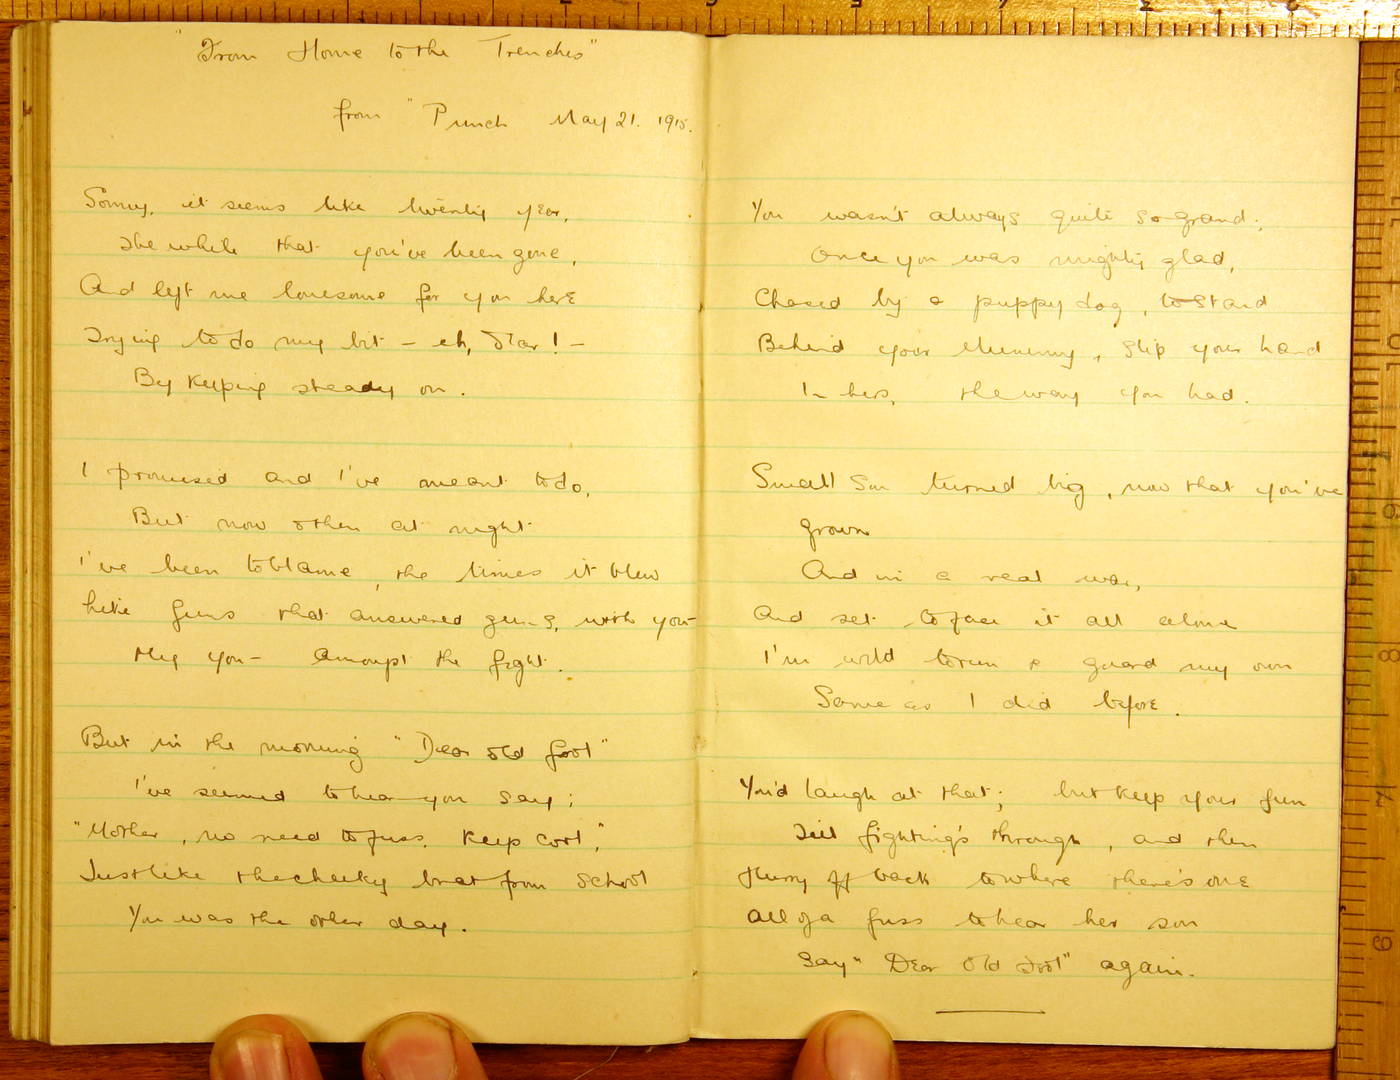 "From Home to the Trenches"
from "Punch May 21. 1915.
Sonny, it seems like twenty year,
The while that you've been gone,
And left me lonesome for you here
Trying to do my bit - eh, Dear! -
By keeping steady on.
I promised and I've meant to do,
But now & then at night
I've been to blame, the times it blew
Like guns that answered guns, with you
My you - amongst the fight.
But in the morning "Dear old fool"
I've seemed to hear you say;
"Mother, no need to fuss. Keep cool",
Just like the cheeky brat from school
You was the other day.
You wasn't always quite so grand;
Once you was mighty glad,
Chased by a puppy dog, to stand
Behind your Mummy, slip your hand
In hers, the way you had.
Small Son turned big, now that you've
grown
And in a real war,
And set to face it all alone
I'm wild to run & guard my own
Same as I did before.
You'd laugh at that; but keep your fun
Till fighting's through, and then
Hurry off back to where there's one
All of a fuss to hear her son
Say "Dear Old Fool" again.